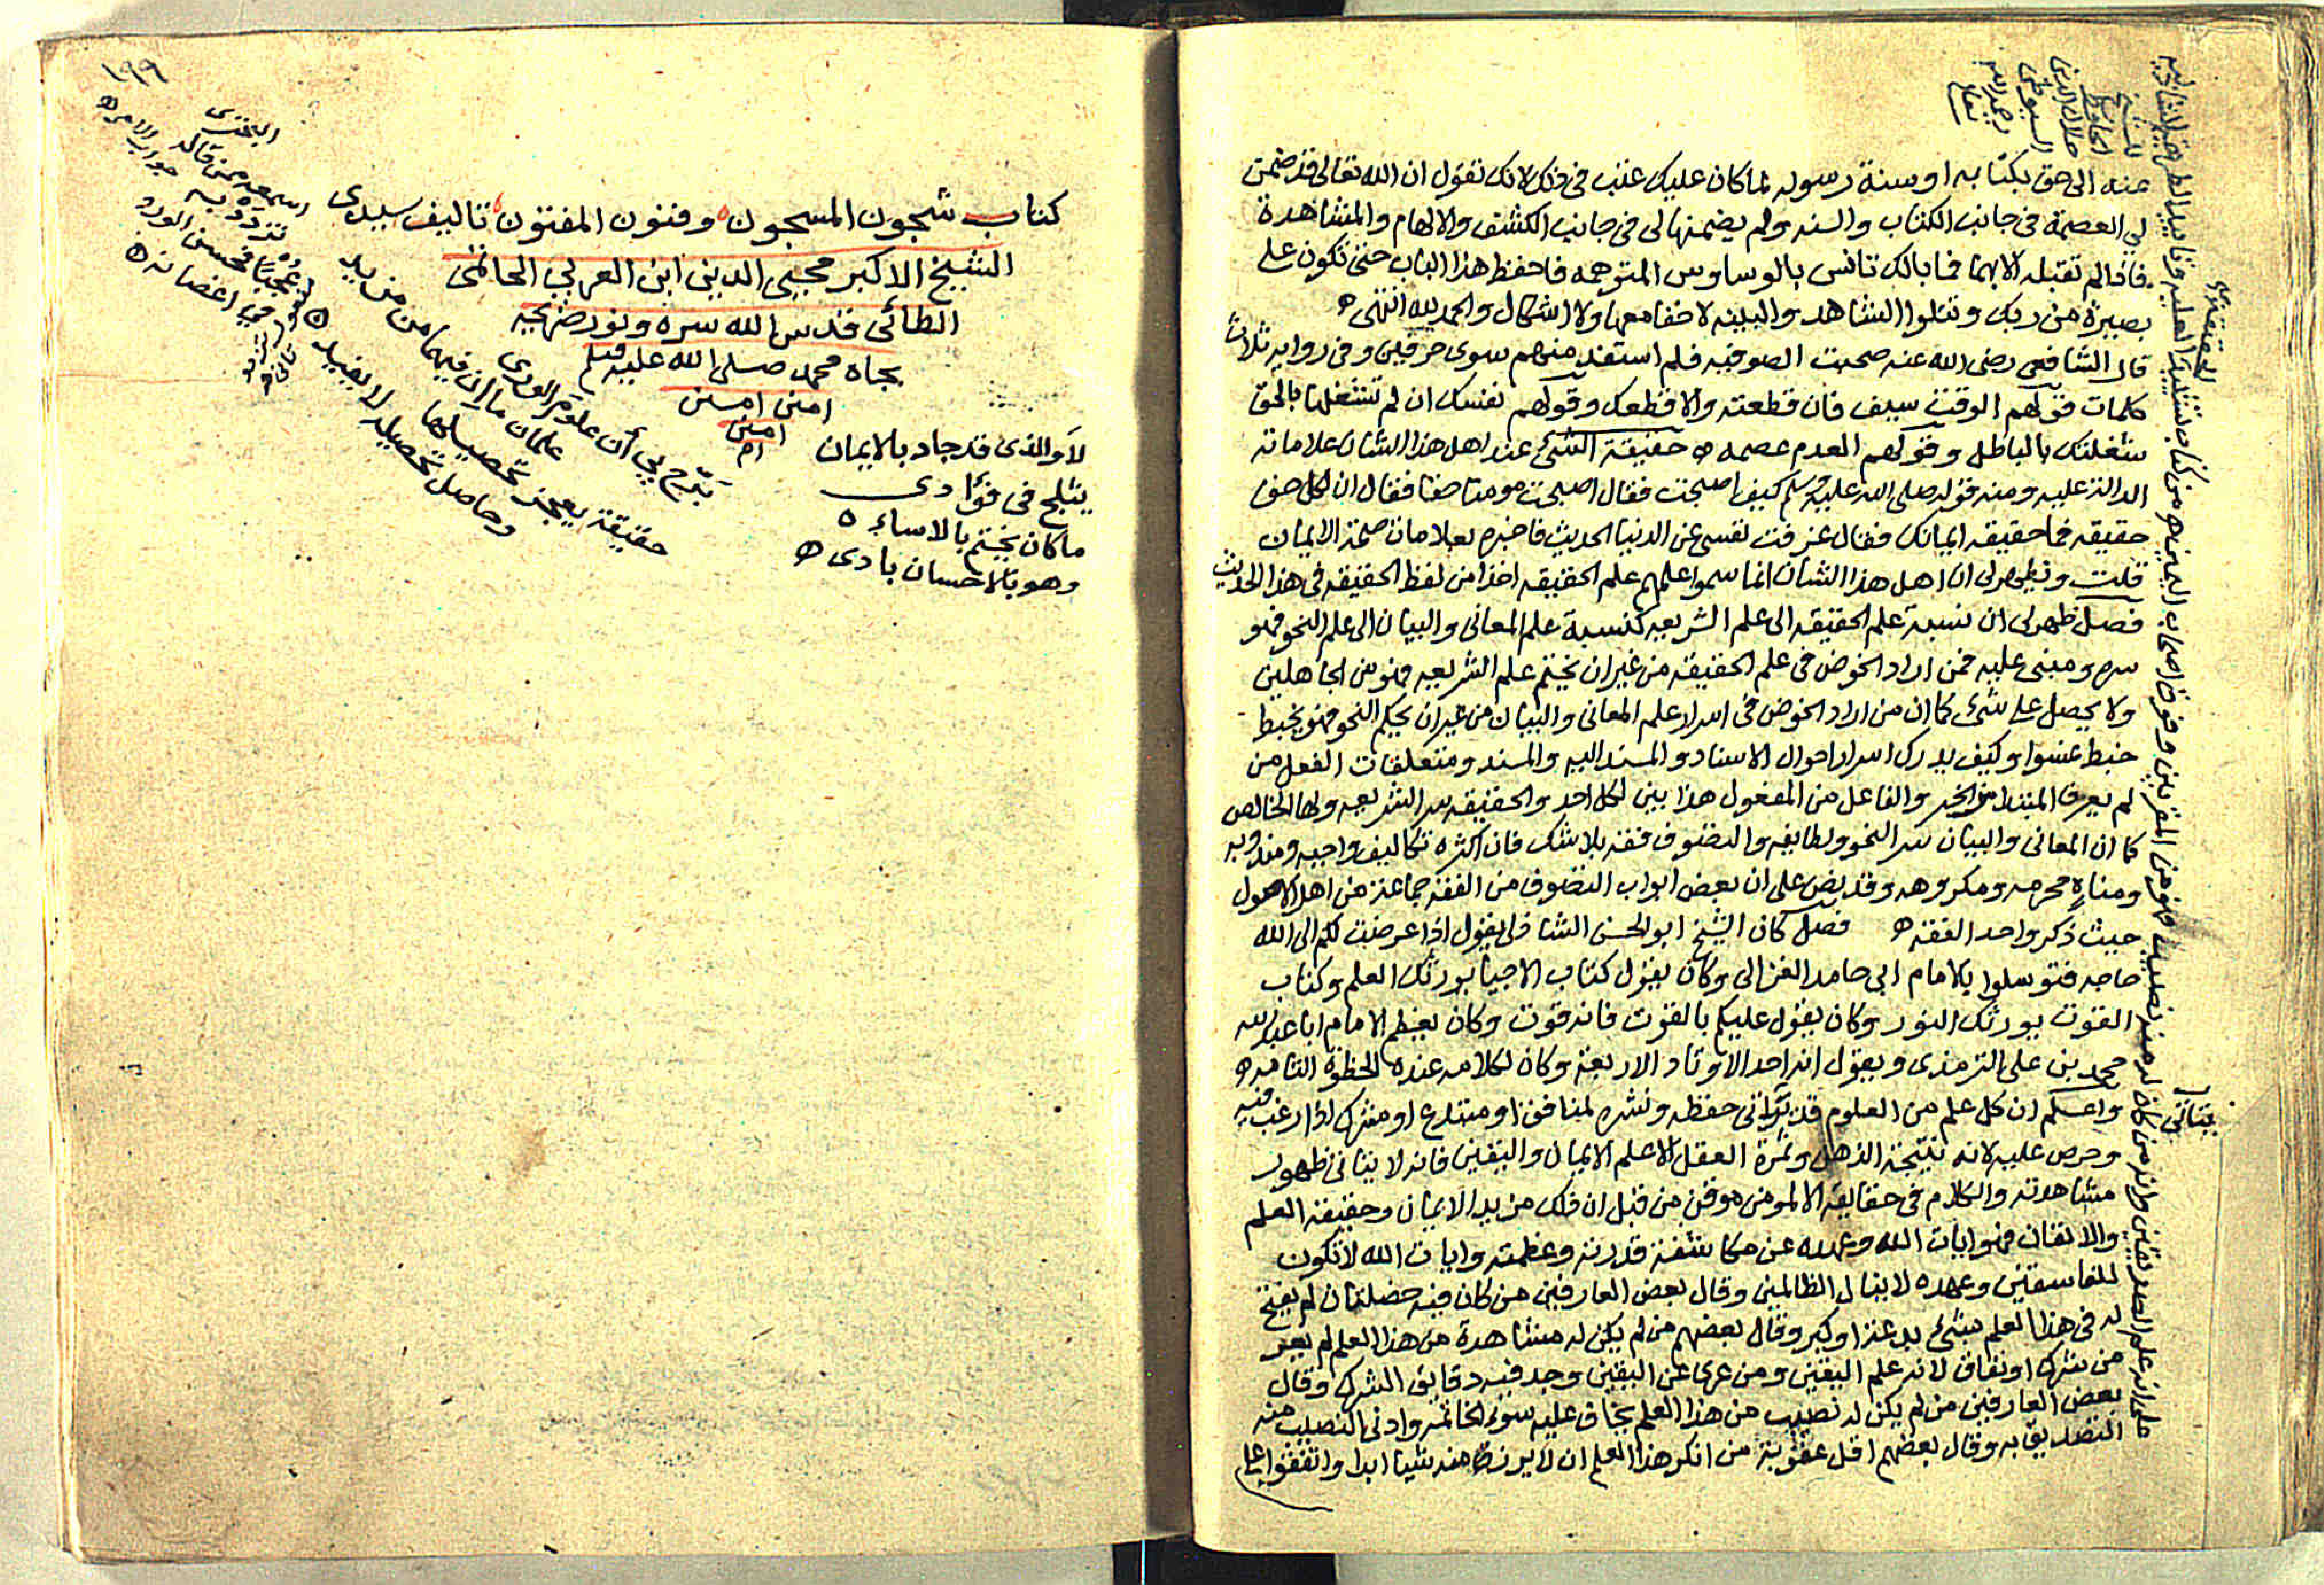 عنه الى حق بكتابه او سنة رسوله لما كان عليك عتب في ذلك لانك تقول ان الله تعالى قد ضمن
لي العصمة في جانب الكتاب والسنه ولم يضمنها لي في جانب الكشف والالهام والمشاهدة
فاذا لم تقبله الا بهما فما بالك تانس بالوساوس المتوهمه فاحفظ هذا الباب حتى تكون على
بصيرة من ربك وتتلوا الشاهد والبينه لا خفا معها ولا اشكال والحمد لله انتهى
قال الشافعى رضى الله عنه صحبت الصوفيه فلم استفد منهم سوى حرفين وفى روايه ثلاث
كلمات قولهم الوقت سيف فان قطعته والا قطعك وقولهم نفسك ان لم تشغلها بالحق
شغلتك بالباطل وقولهم العدم عصمه حقيقة الشئ عند اهل هذا الشان علاماته
الدالة عليه ومنه قوله صلى الله عليه وسلم كيف اصبحت فقال اصبحت مومنا حقا فقال ان لكل حق
حقيقه فما حقيقه ايمانك فقال عزفت نفسى عن الدنيا الحديث فاخبره بعلامات صحة الايمان
قلت ويظهر لى ان اهل هذا الشان انما سموا علمهم علم الحقيقه اخذا من لفظ الحقيقه فى هذا الحديث
فصل ظهر لى ان نسبة علم الحقيقه الى علم الشريعه كنسبة علم المعانى والبيان الى علم النحو فهو
سره ومبنى عليه فمن اراد الخوض فى علم الحقيقه من غير ان يختم علم الشريعه فهو من الجاهلين
ولا يحصل على شئ كما ان من اراد الخوض فى اسرار علم المعانى والبيان من غير ان يحكم النحو فهو يخبط
خبط عشوا وكيف يدرك اسرار احوال الاسناد والمسند اليه والمسند ومتعلقات الفعل من
لم يعرف المبتدا من الخبر والفاعل من المفعول هذا بين لكل احد والحقيقه سر الشريعه ولبها الخالص
كما ان المعانى والبيان سر النحو ولطايفه والتصوف فقه بلا شك فان اكثره تكاليف واجبه ومندوبه
ومناه محرمه ومكروهه وقد نص على ان بعض ابواب التصوف من الفقه جماعة من اهل الاصول
حيث ذكروا حد الفقه فصل كان الشيخ ابو الحسن الشاذلى يقول اذا عرضت لكم الى الله
حاجه فتوسلوا بالامام ابى حامد الغزالى وكان يقول كتاب الاحيا يورثك العلم وكتاب
القوت يورثك النور وكان يقول عليكم بالقوت فانه قوت وكان يعظم الامام ابا عبد الله
محمد بن على الترمذى ويقول انه احد الاوتاد الاربعة وكان لكلامه عنده الحظوة التامه
واعلم ان كل علم من العلوم قد يتاتى حفظه ونشره لمنافق او مبتدع او مشرك اذا رغب فيه
وحرص عليه لانه نتيجة الذهن وثمرة العقل الا علم الايمان واليقين فانه لا يتاتى ظهور
مشاهدته والكلام فى حقايقه الا لمومن موقن من قبل ان ذلك مزيد الايمان وحقيقة العلم
والايقان فهو ايات الله وعهده عن مكاشفة قدرته وعظمته وايات الله لا تكون
للفاسقين وعهده لا ينال الظالمين وقال بعض العارفين من كان فيه خصلتان لم يفتح
له فى هذا العلم بشئ بدعة او كبر وقال بعضهم من لم يكن له مشاهدة من هذا العلم لم يعر
من شرك او نفاق لانه علم اليقين ومن عرى عن اليقين وجد فيه دقايق الشرك وقال
بعض العارفين من لم يكن له نصيب من هذا العلم يخاف عليه سوء الخاتمه وادنى النصيب منه
التصديق به وقال بعضهم اقل عقوبة من انكر هذا العلم ان لا يرزق منه شيئا ابدا واتفقوا على
على انه علم الصديقين وان من كان له منه نصيب فهو من المقربين وفوق اصحاب اليمين
للشيخ
الحافظ
جلال الدين
السيوطى
رحمه الله
تعالى
يتاتى
١٩٩
كتاب شجون المسجون وفنون المفتون تاليف سيدى
الشيخ الاكبر محيى الدين ابن العربي الحاتمى
الطائى قدس الله سره ونور ضريحه
بجاه محمد صلى الله عليه وسلم
امين امين
امين
لا والذى قد جاد بالايمان
يثلج فى فؤادى
ما كان يختم بالاساءه
وهو بالاحسان بادى
علمان ما ان فيهما من مزيد
حقيقة يعجز تحصيلها
وحاصل تحصيله لا يفيد